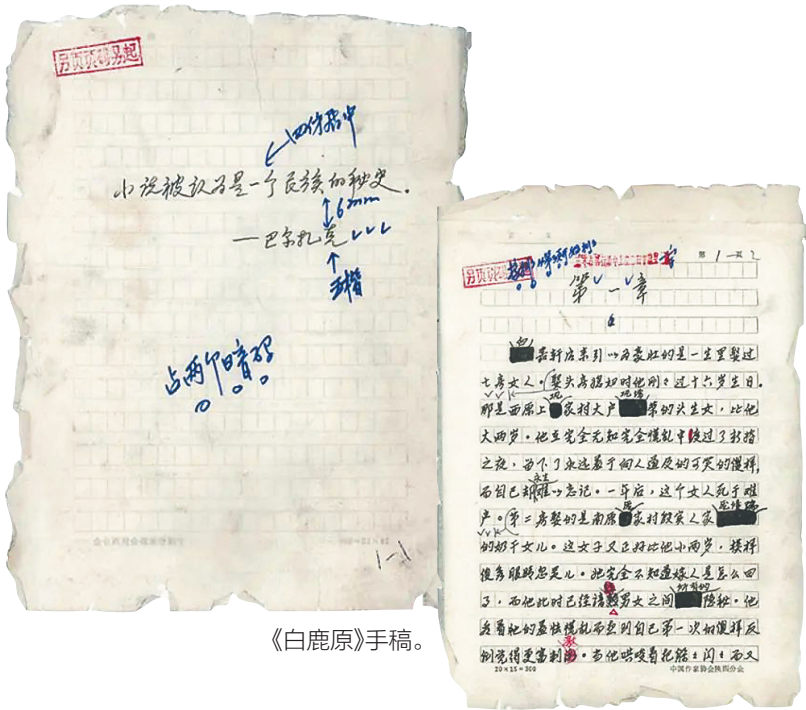 另页页码另起
四仿居中
小说被认为是一个民族的秘史。
6mm
——巴尔扎克
五楷
占两个暗码
1—1
另页
第1—1页
第一章
白
嘉轩后来引以为豪壮的是一生里娶过
七房女人。
娶头房媳妇时他刚刚过十六岁生日。
那是西原上 家村大户 的头生女，比他
大两岁。他在完全无知完全慌乱中度过了新婚
之夜，留下了永远羞于向人道及的可笑的傻样，
永生
而自己却难以忘记。一年后，这个女人死于难
产。
第二房娶的是南原 家村殷实人家
的奶干女儿。这女子又正好比他小两岁，模样
俊秀眼睛忽灵儿。她完全不知道嫁人是怎么回
事，而他此时已经谙熟男女之间 隐秘。他
看着她的羞怯慌乱而想到自己第一次的傻样反
倒觉得更富刺激。当他哄唆着把躲躲闪闪而又
20×15=300
中国作家协会陕西分会
《白鹿原》手稿。